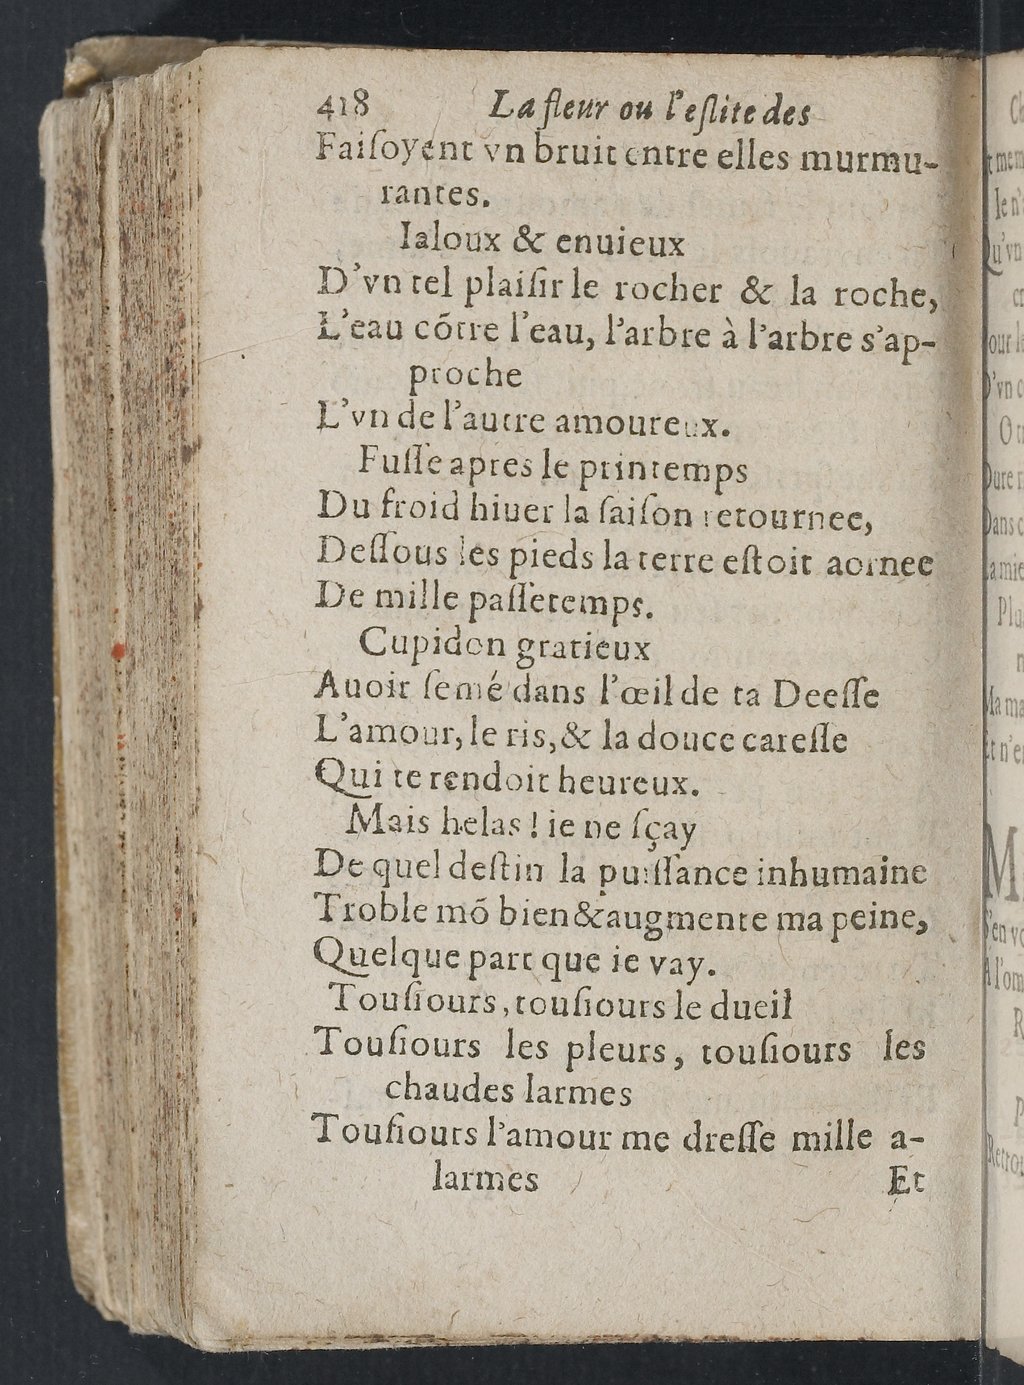 418 La fleur ou l'eſlite des
Faiſoyent vn bruit entre elles murmu-
rantes.
Ialoux & enuieux
D'vn tel plaiſir le rocher & la roche,
L'eau cõtre l'eau, l'arbre à l'arbre s'ap-
proche
L'vn de l'autre amoureux.
Fuſſe apres le printemps
Du froid hiuer la ſaiſon retournee,
Deſſous les pieds la terre eſtoit aornee
De mille paſſetemps.
Cupidon gratieux
Auoit ſemé dans l'œil de ta Deeſſe
L'amour, le ris, & la douce careſſe
Qui te rendoit heureux.
Mais helas ! ie ne ſçay
De quel deſtin la puiſſance inhumaine
Troble mõ bien & augmente ma peine,
Quelque part que ie vay.
Touſiours, touſiours le dueil
Touſiours les pleurs, touſiours les
chaudes larmes
Touſiours l'amour me dreſſe mille a-
larmes
Et